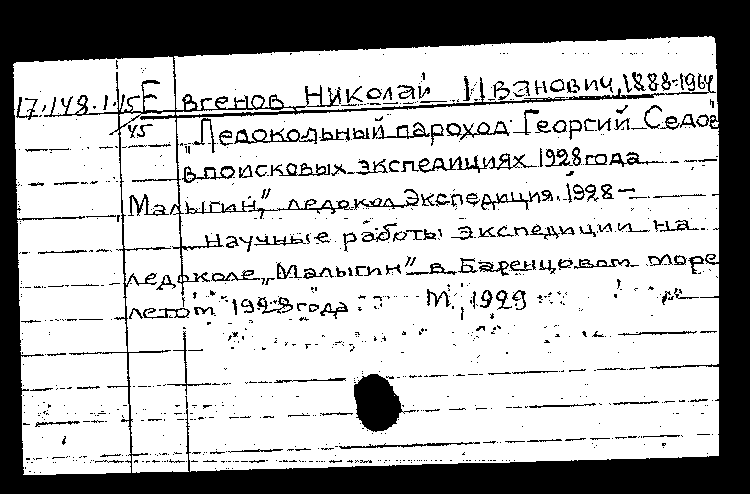 17.148.1.15 Евгенов, Николай Иванович, 1888-1964
45 „Ледокольный пароход Георгий Седов"
в поисковых экспедициях 1928 года
„Малыгин," ледокол Экспедиция. 1928 —
Научные работы экспедиции на
ледоколе „Малыгин" в Баренцовом море
летом 1928 года. М., 1929